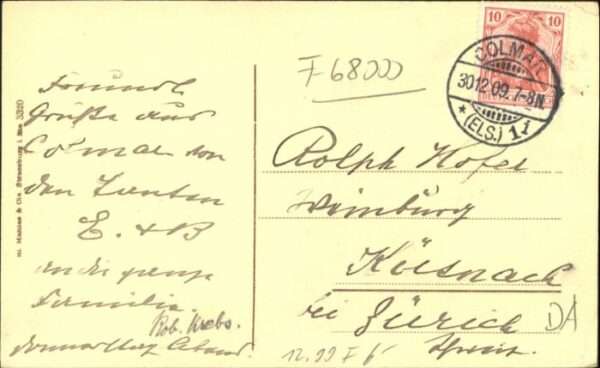 Freundl.
Grüße aus
Colmar von
den Tanten
E. & B
an die ganze
Familie.
Rob. Krebs.
Donnerstag Abend.
F 68000
10 10
COLMAR
30.12.09.7-8N.
* (ELS.) 1
Rolph Hofer
Weinburg
Küsnach
bei Zürich
Schweiz.
DA
12.99 F 6
3320